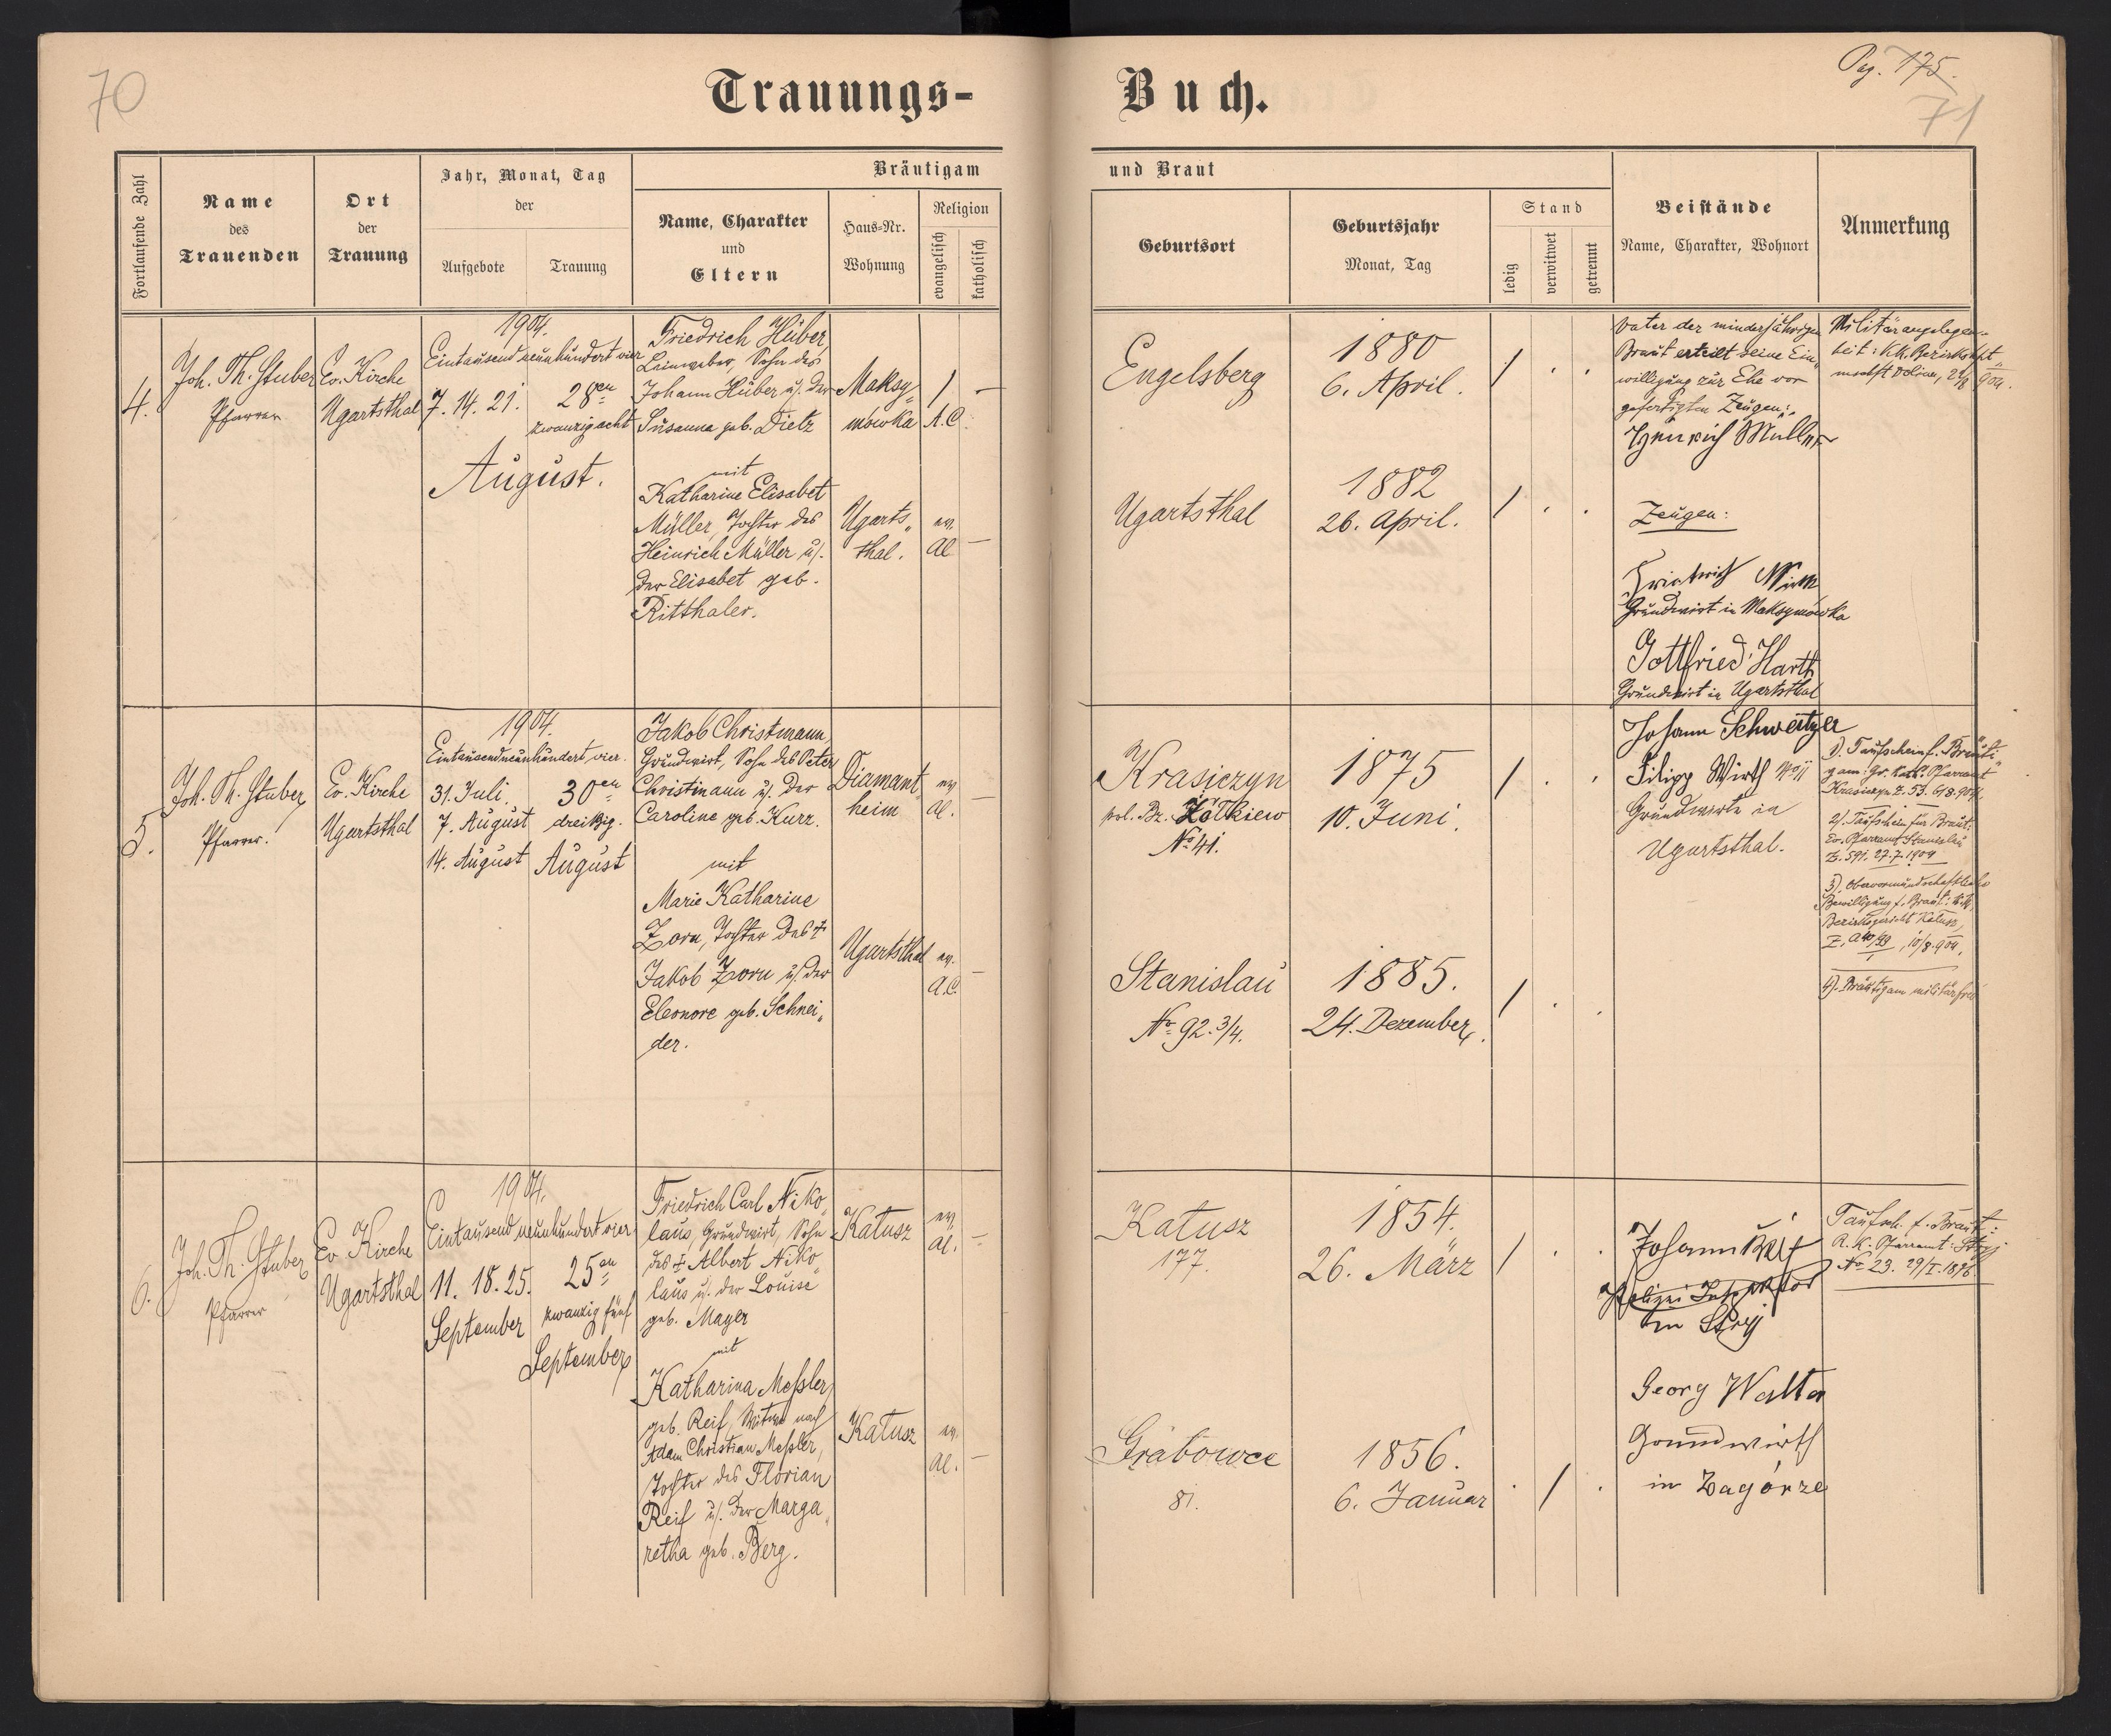 70
Trauungs-
Buch.
Pag. 175.
71
Fortlaufende Zahl
Name
des
Trauenden
Ort
der
Trauung
Jahr, Monat, Tag
der
Aufgebote
Trauung
Bräutigam
Name, Charakter
und
Eltern
Haus-Nr.
Wohnung
Religion
evangelisch
katholisch
und Braut
Geburtsort
Geburtsjahr
Monat, Tag
Stand
ledig
verwitwet
getrennt
Beistände
Name, Charakter, Wohnort
Anmerkung
4.
Joh. Th. Stuber
Pfarrer
Ev. Kirche
Ugartsthal
1904.
Eintausendneunhundert vier
7. 14. 21.
28en
zwanzigacht
August.
Friedrich Huber,
Leinweber, Sohn des
Johann Huber u. der
Susanna geb. Dietz
Maksy„
mowka
/ –
A.C.
mit
Katharine Elisabet
Müller, Tochter des
Heinrich Müller u.
der Elisabet geb.
Ritthaler.
Ugarts„
thal.
ev. –
AC
Engelsberg
1880
6. April.
/ . .
Ugartsthal
1882
26. April.
/ . .
Vater der minderjährigen
Braut erteilt seine Ein„
willigung zur Ehe vor
gefertigten Zeugen:
Heinrich Müller
Zeugen:
Friedrich
Grundwirt in Maksymówka
Gottfried Harth
Grundwirt in Ugartsthal
Militärangelegen-
heit: KK. Bezirkshpt
mschft Dolina,
5.
Joh. Th. Stuber
Pfarrer.
Ev. Kirche
Ugartsthal
1904.
Eintausendneunhundert vier.
31. Juli
7. August
14. August
30en
dreißig.
August
Jakob Christmann,
Grundwirt, Sohn des Peter
Christmann u. der
Caroline geb. Kurz.
Diamant„
heim
ev. –
AC.
mit
Marie Katharine
Zorn, Tochter des †
Jakob Zorn u. der
Eleonore geb. Schnei„
der.
Ugartsthal
ev. –
A.C.
Krasiczyn
pol. Bz. Żółkiew
No 41.
1875
10. Juni.
/ . .
Stanislau
No 92. 3/4.
1885.
24. Dezember.
/ . .
Johann Schweitzer
Filipp Wirth
Grundwirte in
Ugartsthal.
1). Taufschein f. Bräuti„
gam: Gr. Kath. Pfarramt
Krasiczyn Z. 53. 6/8. 904.
2). Taufschein für Braut:
Ev. Pfarramt Stanislau
Z. 591. 27. 7. 1904
3). Obervormundschaftliche
Bewilligung f. Braut: K.K.
Bezirksgericht Kałusz,
10/8. 904.
4). Bräutigam militärfrei
6.
Joh. Th. Stuber
Pfarrer
Ev. Kirche
Ugartsthal
1904.
Eintausend neunhundert vier
11. 18. 25.
September
25en
zwanzig fünf
September
Friedrich Carl Niko„
laus, Grundwirt, Sohn
des † Albert Niko„
laus u. der Louise
geb. Mayer
Kałusz
ev. –
AC.
mit
Katharina Meßler,
geb. Reif, Witwe nach
Adam Christian Meßler,
Tochter des Florian
Reif u. der Marga„
retha geb. Berg.
Kałusz
ev. –
AC.
Kałusz
177.
1854.
26. März
/ . .
Grabowce
81.
1856.
6. Januar
. / .
Johann Reif
Polizei Inspektor
in Stryj
Georg Walter
Grundwirth
in Zagórze
Taufsch. f. Braut:
R. K. Pfarramt: Stryj
No 23. 29/I. 1896